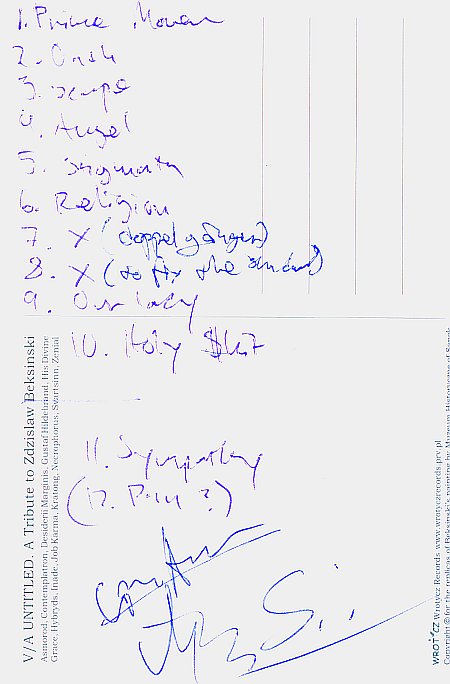 1. Prime Mover
2. Crash
3. Scape
4. Angel
5. Stigmata
6. Religion
7. X (doppelgänger)
8. X (to fix the shadow)
9. Our lady
10. Holy $lut
11. Sympathy
(12. Pain?)
V/A UNTITLED . A Tribute to Zdzislaw Beksinski
Asmorod, Contemplatron, Desiderii Marginis, Gustaf Hildebrand, His Divine
Grace, Hybryds, Inade, Job Karma, Kratong, Necrophorus, Svartsinn, Zenial
WROTYCZ Wrotycz Records www.wrotyczrecords.prv.pl
Copyright © for the replicas of Beksinski's painting by Muzeum Historyczne of Sanok